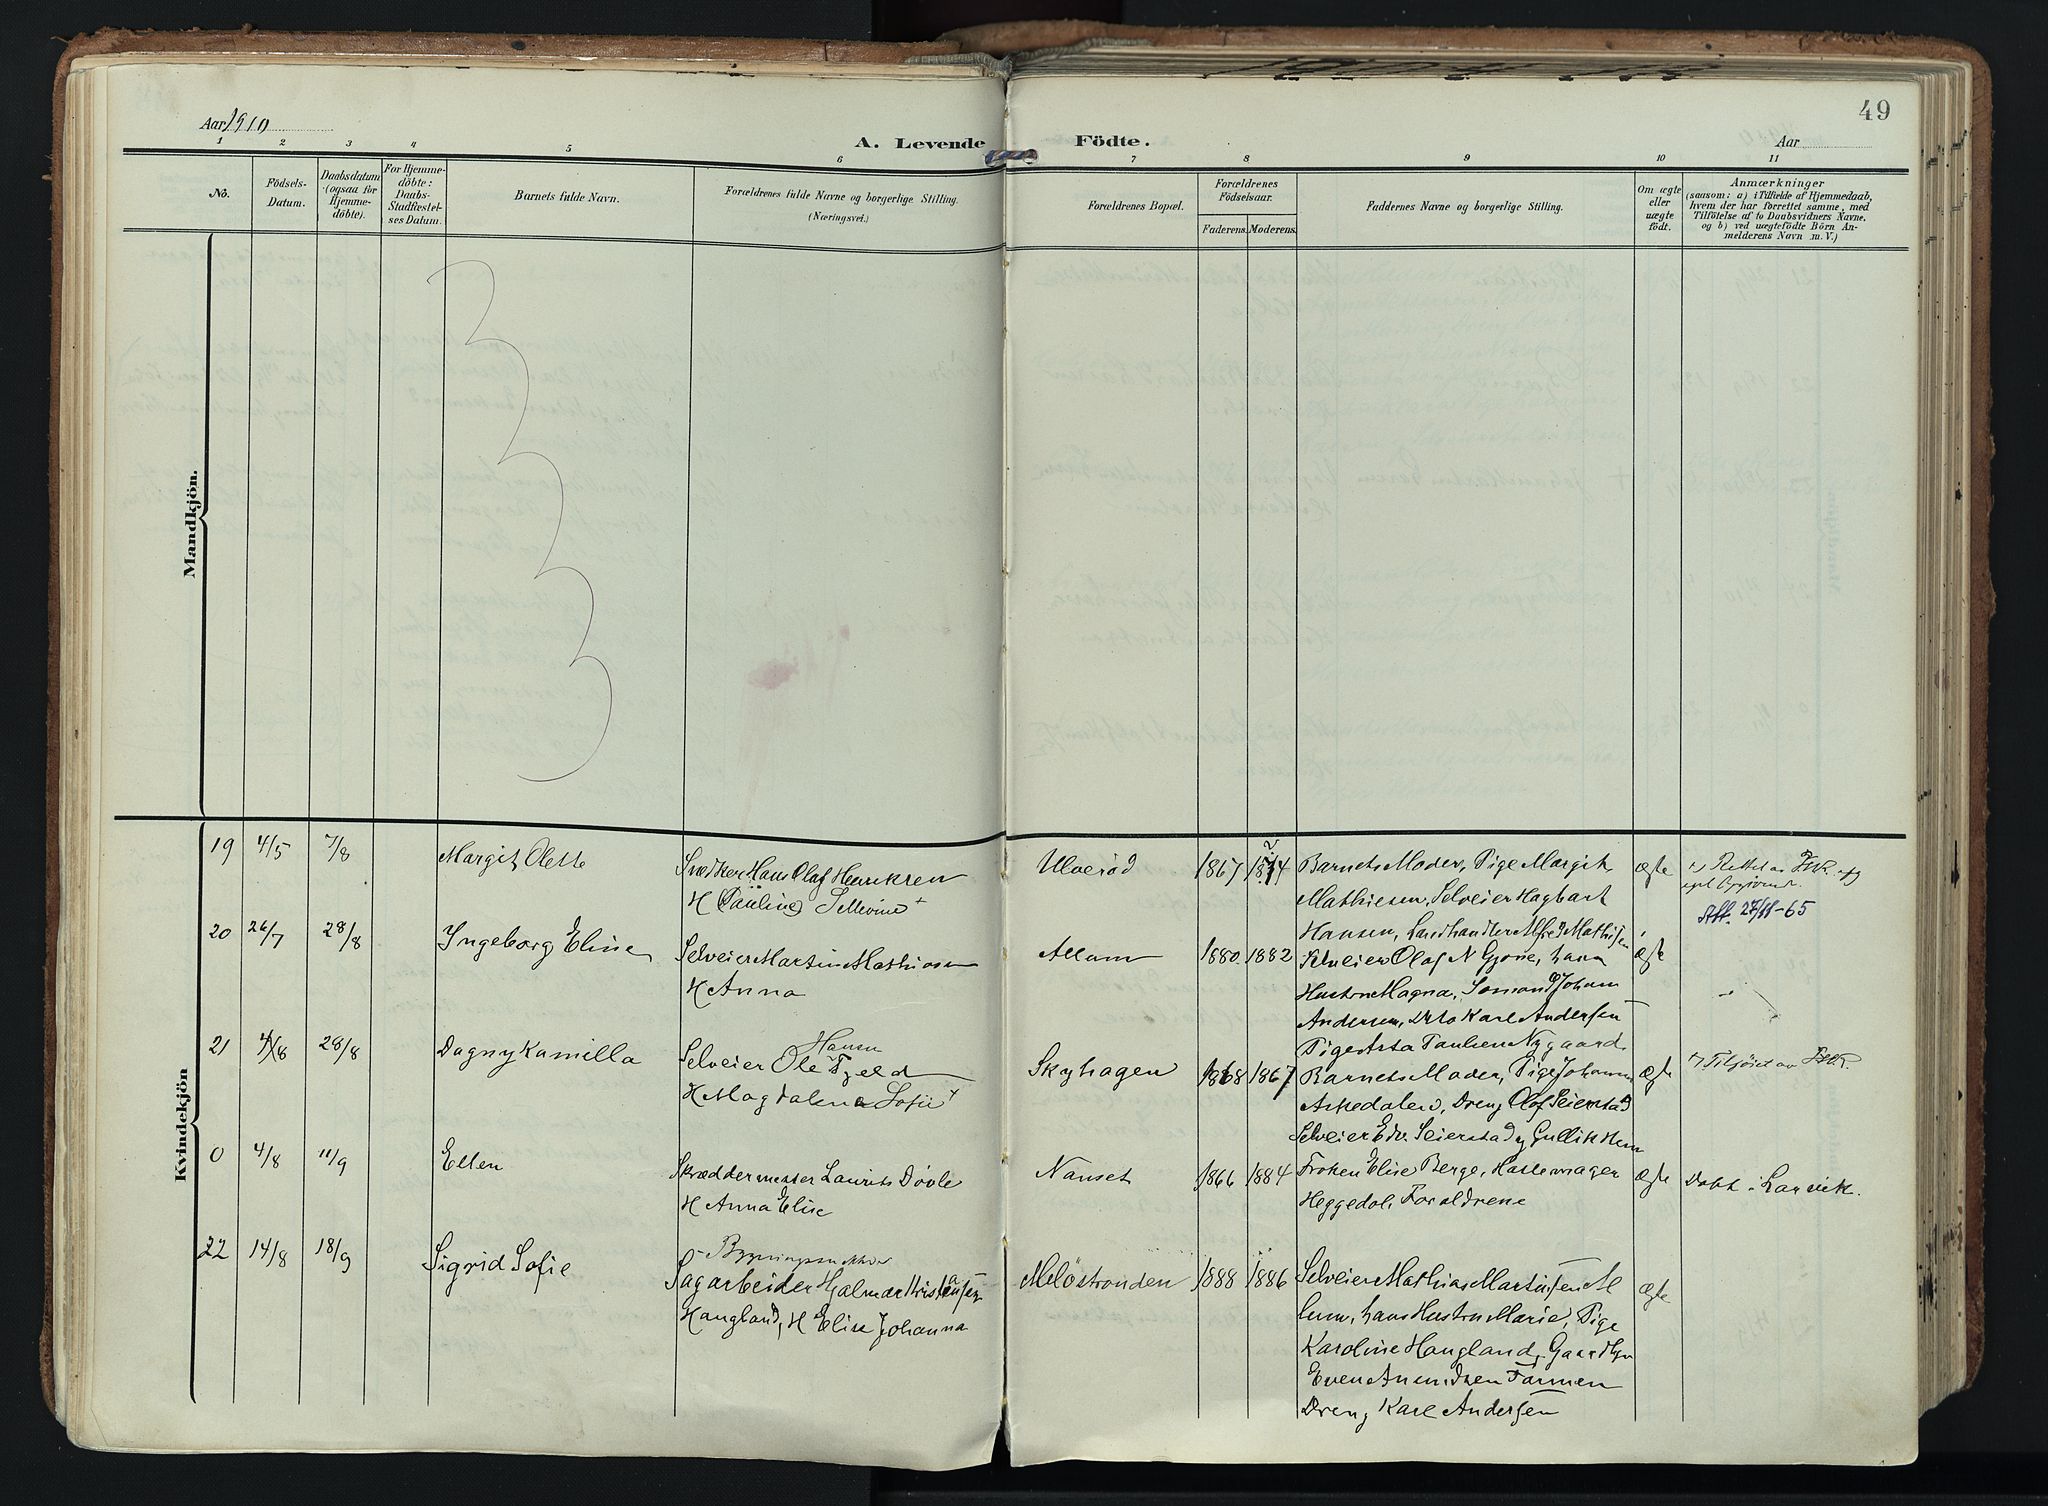 49
Aar 1910
A. Levende Födte.
Aar
1 2 3 4 5 6 7 8 9 10 11
No.
Födsels-Datum.
Daabsdatum (ogsaa for Hjemme-döbte).
For Hjemme-döbte: Daabs-Stadfæstel-ses Datum.
Barnets fulde Navn.
Forældrenes fulde Navne og borgerlige Stilling.
(Næringsvei.)
Forældrenes Bopæl.
Forældrenes Födselsaar.
Faderens. Moderens.
Faddernes Navne og borgerlige Stilling.
Om ægte eller uægte födt.
Anmærkninger
(saasom: a) i Tilfælde af Hjemmedaab,
hvem der har forrettet samme, med
Tilföielse af to Daabsvidners Navne.
og b) ved uægtefödte Börn An-
melderens Navn m. V.)
Mandkjön.
Kvindekjön
19 4/5 7/8 Margit Olette
Hans Olaf Henriksen
H Pauline
Ulverød 1867
Barnets Moder, Pige Margit
Mathiesen, Selveier Hagbart
Hansen, Landhandler Alfred Mathisen
ægte
Att. 27/11-65
20 26/7 28/8 Ingeborg Eline
Selveier Martin Mathiasen
H Anna
Allum 1880 1882
Selveier Olaf N Gjone, hans
Hustru Magna, Sømand Johan
Andersen, Ditto Karl Andersen
Pige Asta Paulsen Nygaard
ægte
21 4/8 28/8 Dagny Kamilla
Hansen
Selveier Ole Fjeld
H Magdalena Sofie
Skyhagen 1868 1867
Barnets Moder, Pige Johanne
Askedalen, Dreng Olaf Seierstad
Selveier Edv. Seierstad, Gullik
ægte
Tilføiet av
0 4/8 11/9 Ellen
Skræddermester Laurits Døvle
H Anna Elise
Nanset 1866 1884
Frøken Elise Berge, Hattemager
Heggedal, Forældrene
ægte
Døbt i Larvik.
22 14/8 18/9 Sigrid Sofie
Sagarbeider Hjalmar Kristiansen
Haugland, H Elise Johanna
Meløstranden 1888 1886
Selveier Mathias Martinsen Al
lum, hans Hustru Marie, Pige
Karoline Haugland, Gaardbr
Even Amundsen Farmen
Dreng Karl Andersen
ægte